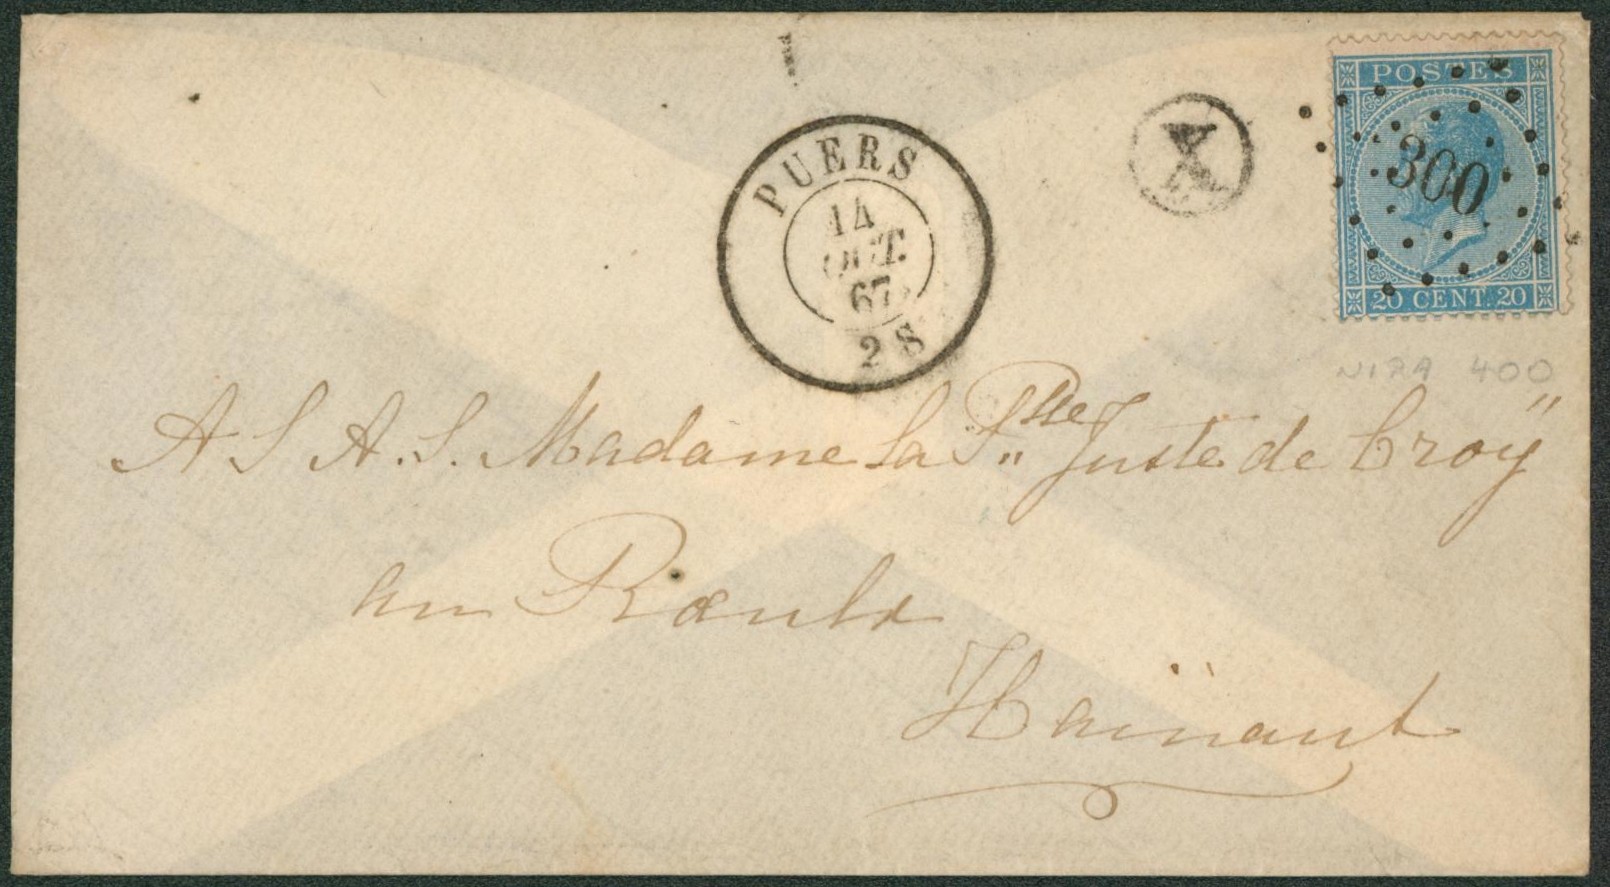 POSTES
300
20 CENT. 20
X
PUERS
14
OCT.
67
2 S
400
A S A. S. Madame la Psse Juste de Croÿ
au Rœulx
Hainaut